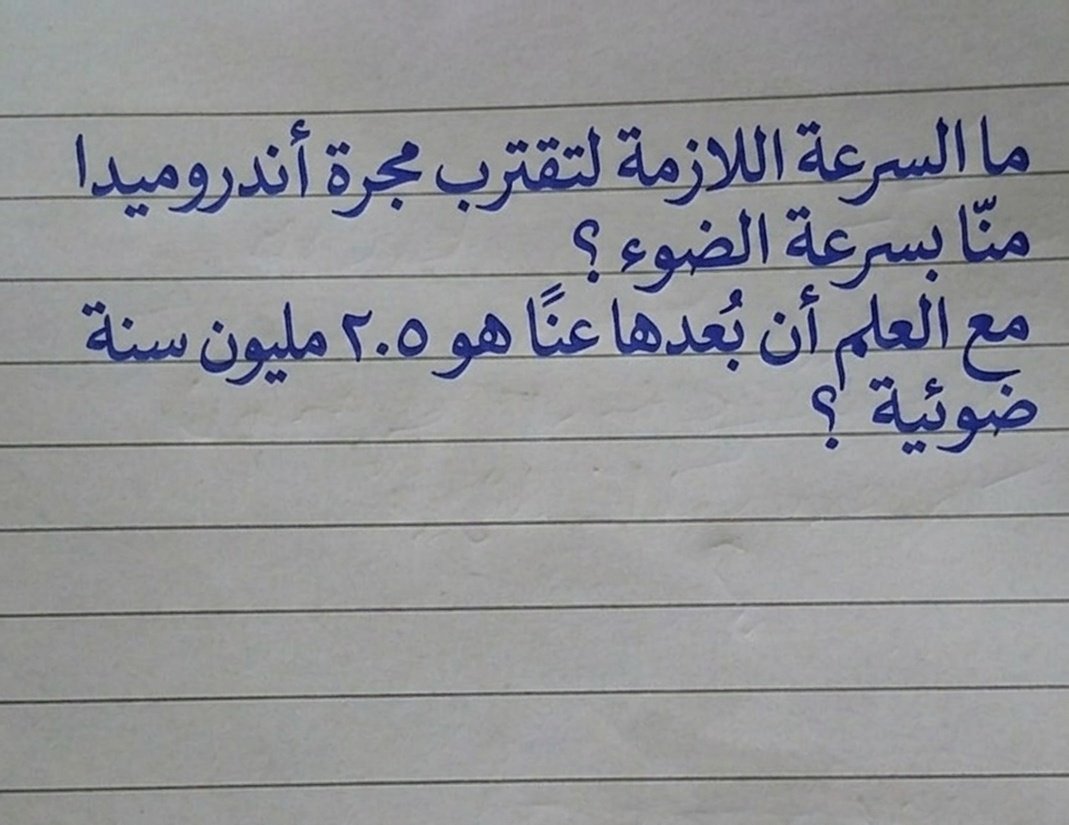 ما السرعة اللازمة لتقترب مجرة أندروميدا
منّا بسرعة الضوء ؟
مع العلم أن بُعدها عنًا هو ٢.٥ مليون سنة
ضوئية ؟